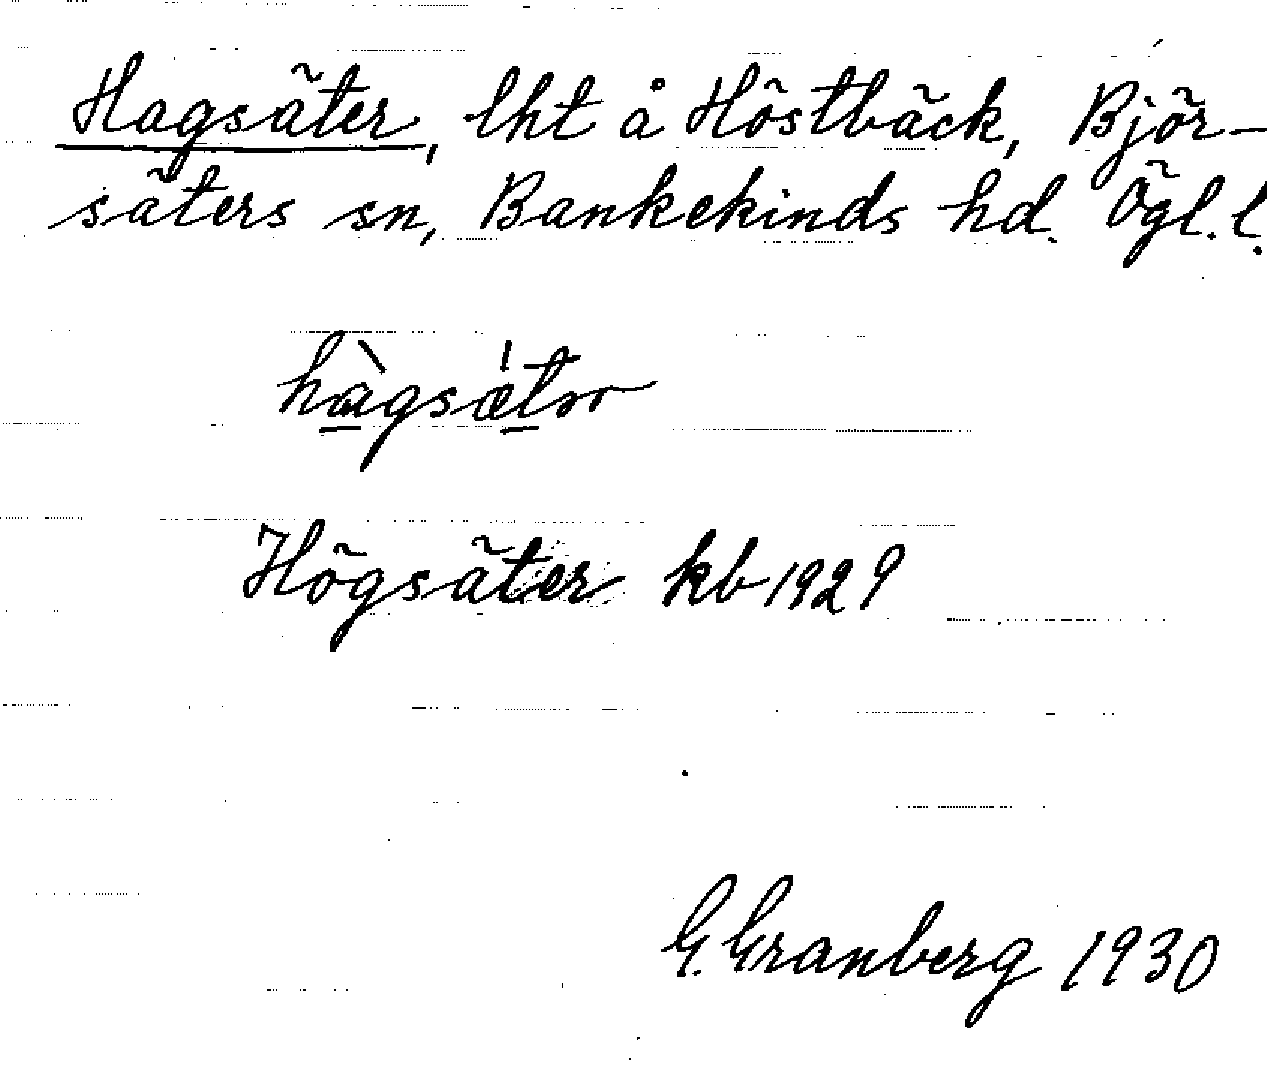 Hagsäter, lht å Höstbäck, Björ-
säters sn, Bankekinds hd. Ögl. l.
hàgsǽtər
Högsäter kb 1929
G. Granberg 1930